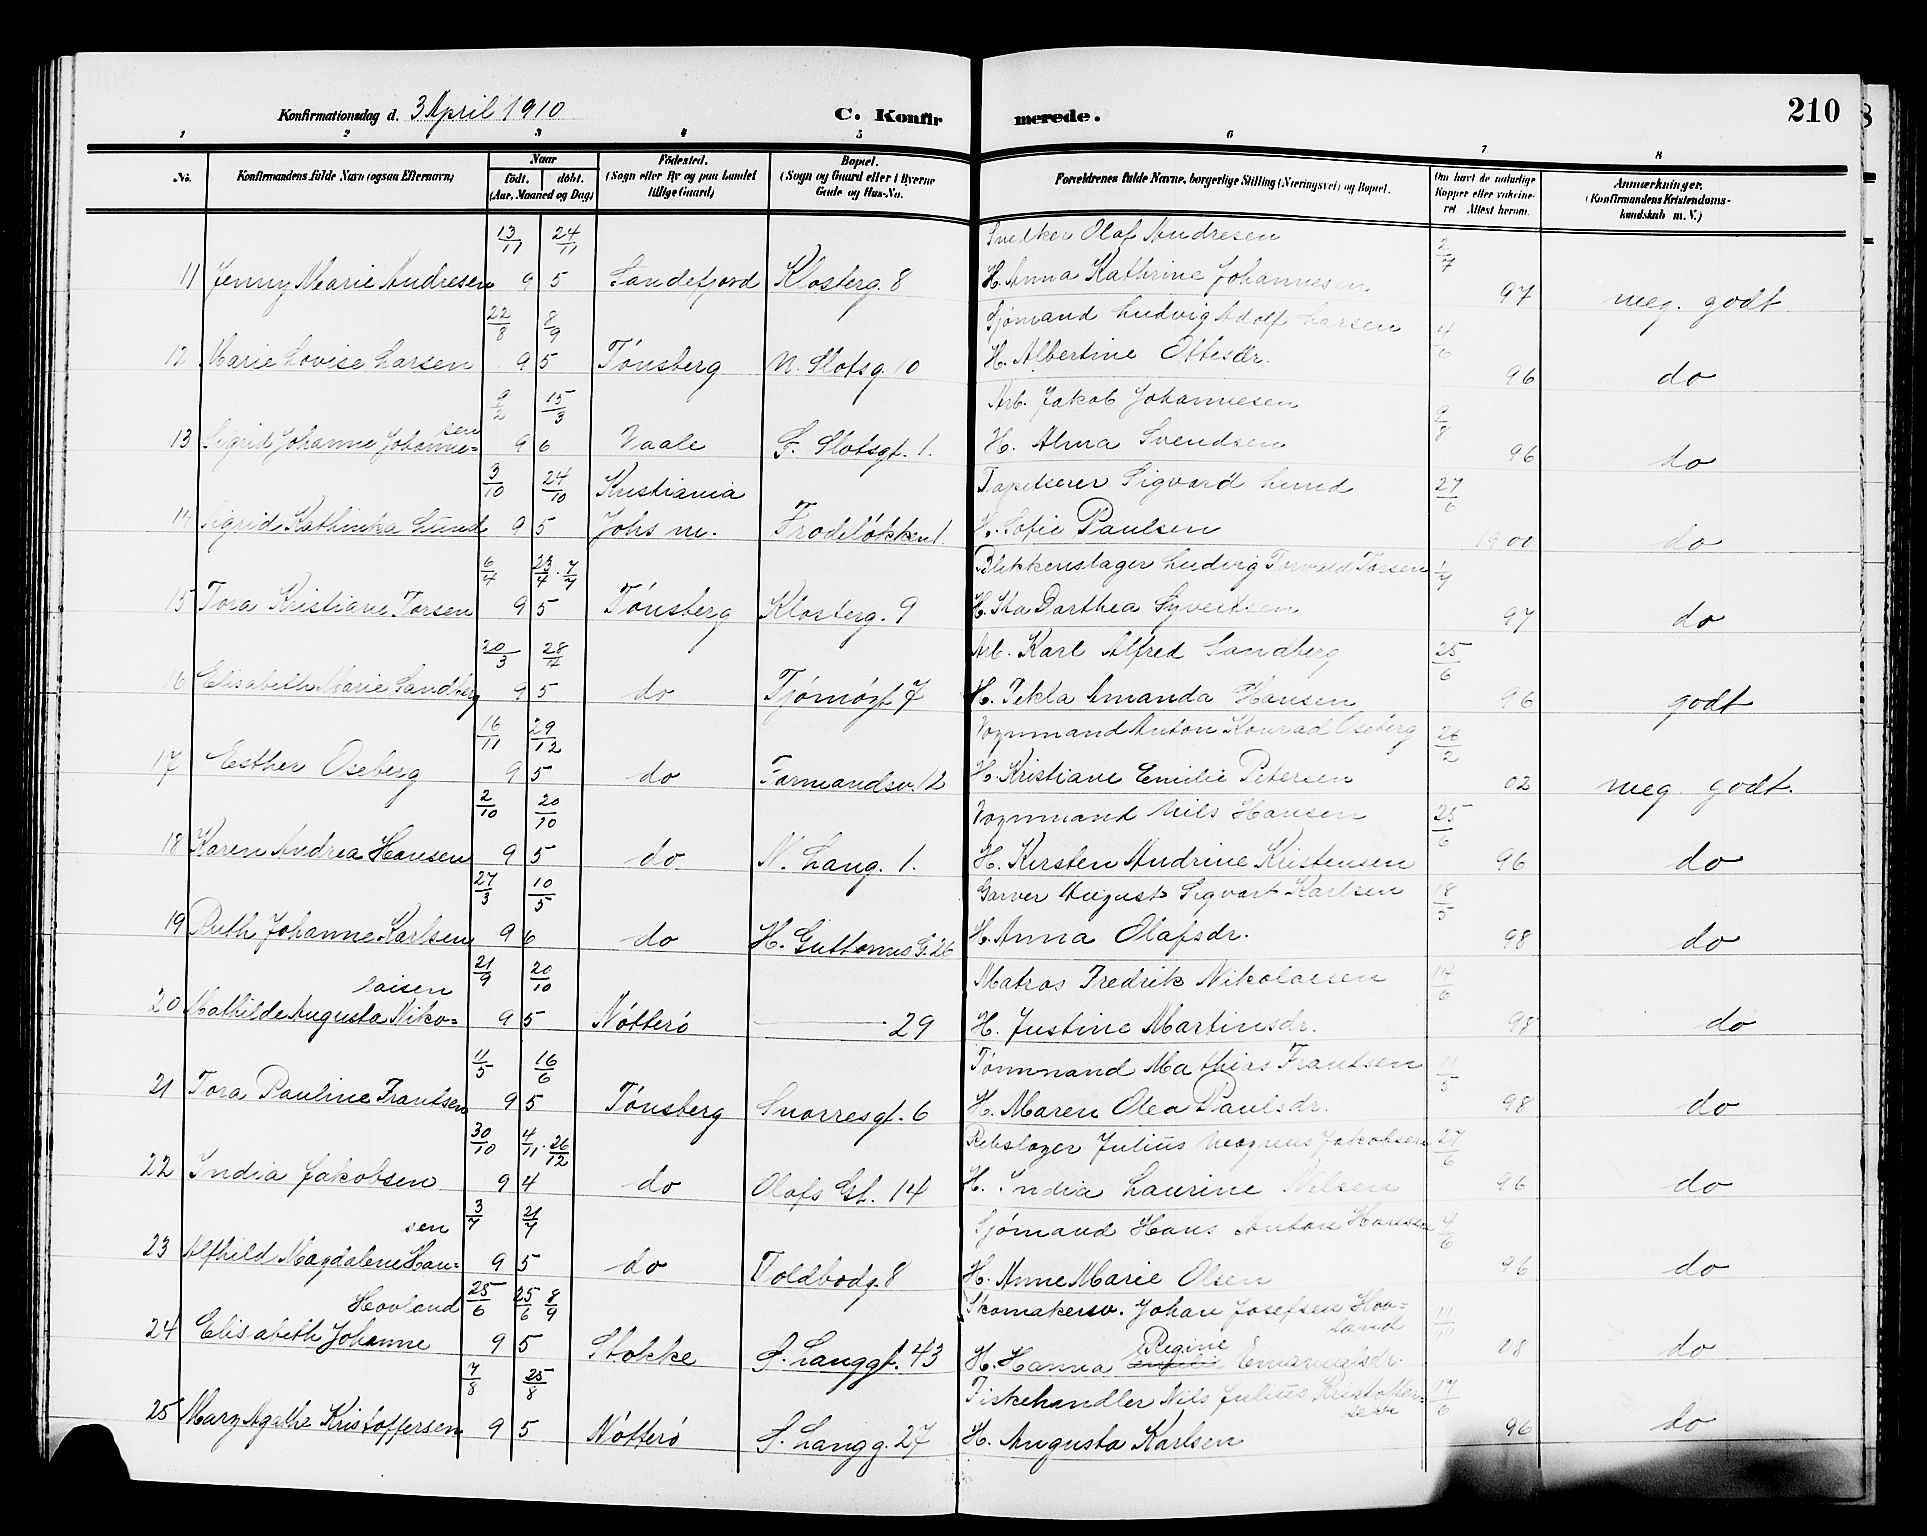 Konfirmationsdag d. 3 April 1910 C. Konfirmerede. 210
1 2 3 4 5 6 7 8
No. Konfirmandens fulde Navn (ogsaa Efternavn) Naar født, døbt. (Aar, Maaned og Dag) Fødested. (Sogn eller By og paa Landet tillige Gaard) Bopæl. (Sogn og Gaard eller i Byerne Gade og Hus-No. Forældrenes fulde Navne, borgerlige Stilling (Næringsvei) og Bopæl. Om havt de naturlige Kopper eller vaksineret Attest herom. Anmærkninger. (Konfirmandens Kristendomskundskab m. V.)
13/11 24/11 Snedker Olaf Andresen 2/7
11 Jenny Marie Andresen 9 5 Sandefjord Klosterg. 8 H. Anna Kathrine Johannesen 97 meg. godt
22/8 8/9 Sjømand Ludvig Adolf Larsen 4/6
12 Marie Lovise Larsen 9 5 Tønsberg N. Slotsg. 10 H. Albertine Ottesdr. 96 do
9/2 15/3 Arb. Jakob Johannesen 9/8
13 Sigrid Johanne Johannesen 9 6 Vaale F. Slotsgt. 1. H. Alma Svendsen 96 do
3/10 24/10 Kristiania Tapetserer Sigvard Lund 27/6
14 Sigrid Kathinka Lund 9 5 Johs m. Frodeløkken 1. H. Sofie Paulsen 1900 do
6/4 23/4 . 7/7 Blikkenslager Ludvig Torvald Torsen 1/7
15 Tora Kristiane Torsen 9 5 Tønsberg Klosterg. 9 H. Ida Darthea Syvertsen 97 do
20/3 28/4 Arb. Karl Alfred Sandberg 25/6
16 Elisabeth Marie Sandberg 9 5 do Tjømøgt 7 H. Tekla Amanda Hansen 96 godt
16/11 29/12 Vognmand Anton Konrad Oseberg 26/2
17 Esther Oseberg 9 5 do Farmandsv. 12 H. Kristiane Emilie Petersen 02 meg. godt.
2/10 20/10 Vognmand Nils Hansen 25/6
18 Karen Andrea Hansen 9 5 do N. Lang. 1. H. Kirsten Andrine Kristensen 96 do
27/3 10/5 Garver August Sigvart Karlsen 18/5
19 Ruth Johanne Karlsen 9 6 do H. Guttorms G. 26 H. Anna Olafsdr. 98 do
laisen 21/9 20/10 Matros Fredrik Nikolaesen 14/6
20 Mathilde Augusta Niko= 9 5 Nøtterø — 29 H. Justine Martinsdr. 98 do
11/5 16/6 Tømmand Mathias Frantsen 11/5
21 Tora Pauline Frantsen 9 5 Tønsberg Snorresgt. 6 H. Maren Olea Paulsdr. 98 do
30/10 4/11 . 26/12 Rebslager Julius Magnus Jakobsen 27/6
22 India Jakobsen 9 4 do Olafs Gt. 14 H. India Laurine Nilsen 96 do
sen 3/7 21/7 Sjømand Hans Anton Hansen 4/6
23 Alfhild Magdalene Han= 9 5 do Toldbodg. 8 H. Anne Marie Olsen 96 do
Hovland 25/6 25/6 8/9 Skomakersv. Johan Josefsen Hovland 11/11
24 Elisabeth Johanne 9 5 Stokke S. Langgt. 43 H. Hanna Regine Emanuelsdr. 08 do
7/8 25/8 Fiskehandler Nils Julius Kristoffersen 17/6
25 Mary Agathe Kristoffersen 9 5 Nøtterø S. Langg. 27 H. Augusta Karlsen 96 do